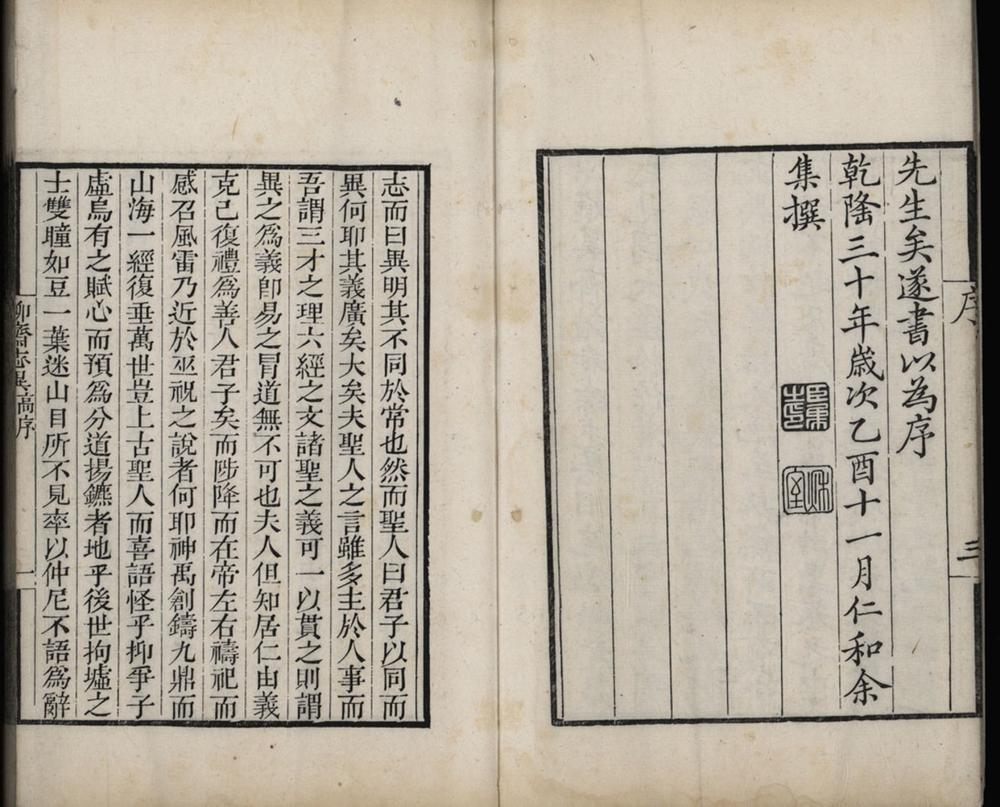 先生矣遂書以為序
乾隆三十年歲次乙酉十一月仁和余
集撰
序
三
志而曰異明其不同於常也然而聖人曰君子以同而
異何耶其義廣矣大矣夫聖人之言雖多主於人事而
吾謂三才之理六經之文諸聖之義可一以貫之則謂
異之爲義卽易之冒道無不可也夫人但知居仁由義
克己復禮爲善人君子矣而陟降而在帝左右禱祀而
感召風雷乃近於巫祝之說者何耶神禹創鑄九鼎而
山海一經復垂萬世豈上古聖人而喜語怪乎抑爭子
虛烏有之賦心而預爲分道揚鑣者地乎後世拘墟之
士雙瞳如豆一葉迷山目所不見率以仲尼不語爲辭
聊齋志異高序
一